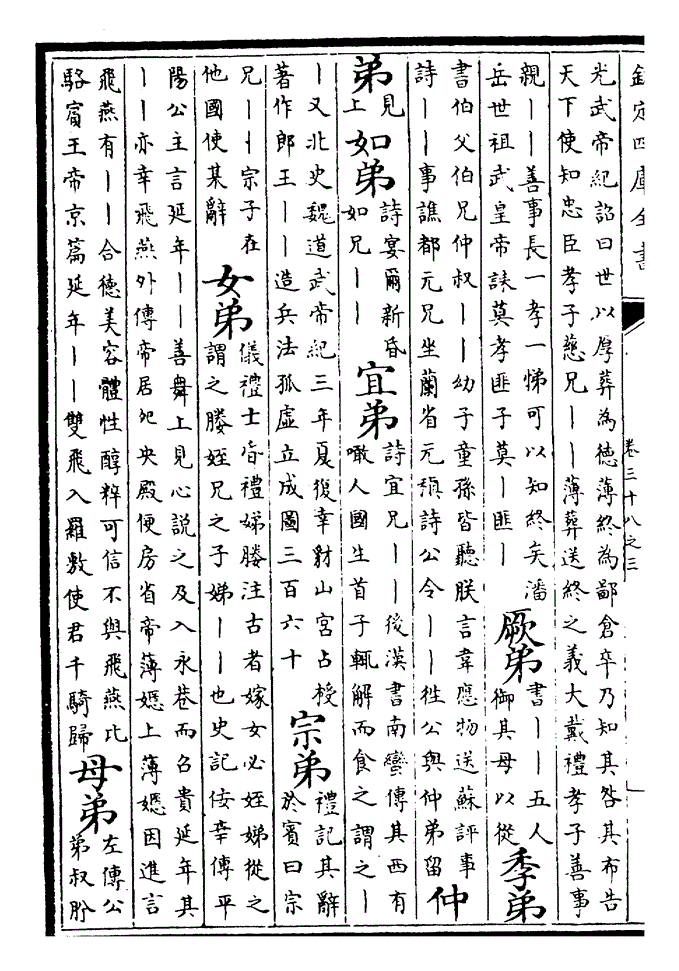 欽定四庫全書
卷三十八之三
光武帝紀詔曰世以厚葬為德薄終為鄙倉卒乃知其咎其布告
天下使知忠臣孝子慈兄丨丨薄葬送終之義大戴禮孝子善事
親丨丨善事長一孝一悌可以知終矣潘
岳世祖武皇帝誄莫孝匪子莫丨匪丨
厥弟
書丨丨五人
御其母以從
季弟
書伯父伯兄仲叔丨丨幼子童孫皆聽朕言韋應物送蘇評事
詩丨丨事譙都元兄坐蘭省元稹詩公令丨丨牲公與仲弟留
仲
弟
見
上
如弟
詩宴爾新昏
如兄丨丨
宜弟
詩宜兄丨丨後漢書南蠻傳其西有
噉人國生首子輒解而食之謂之丨
丨又北史魏道武帝紀三年夏復幸豺山宮占授
著作郎王丨丨造兵法孤虛立成圖三百六十
宗弟
禮記其辭
於賓曰宗
兄丨丨宗子在
他國使某辭
女弟
儀禮士昏禮娣媵注古者嫁女必姪娣從之
謂之媵姪兄之子娣丨丨也史記佞幸傳平
陽公主言延年丨丨善舞上見心說之及入永巷而召貴延年其
丨丨亦幸飛燕外傳帝居鴛央殿便房省帝薄嬺上薄嬺因進言
飛燕有丨丨合德美容體性醇粹可信不與飛燕比
駱賓王帝京篇延年丨丨雙飛入羅敷使君千騎歸
母弟
左傳公
弟叔肸